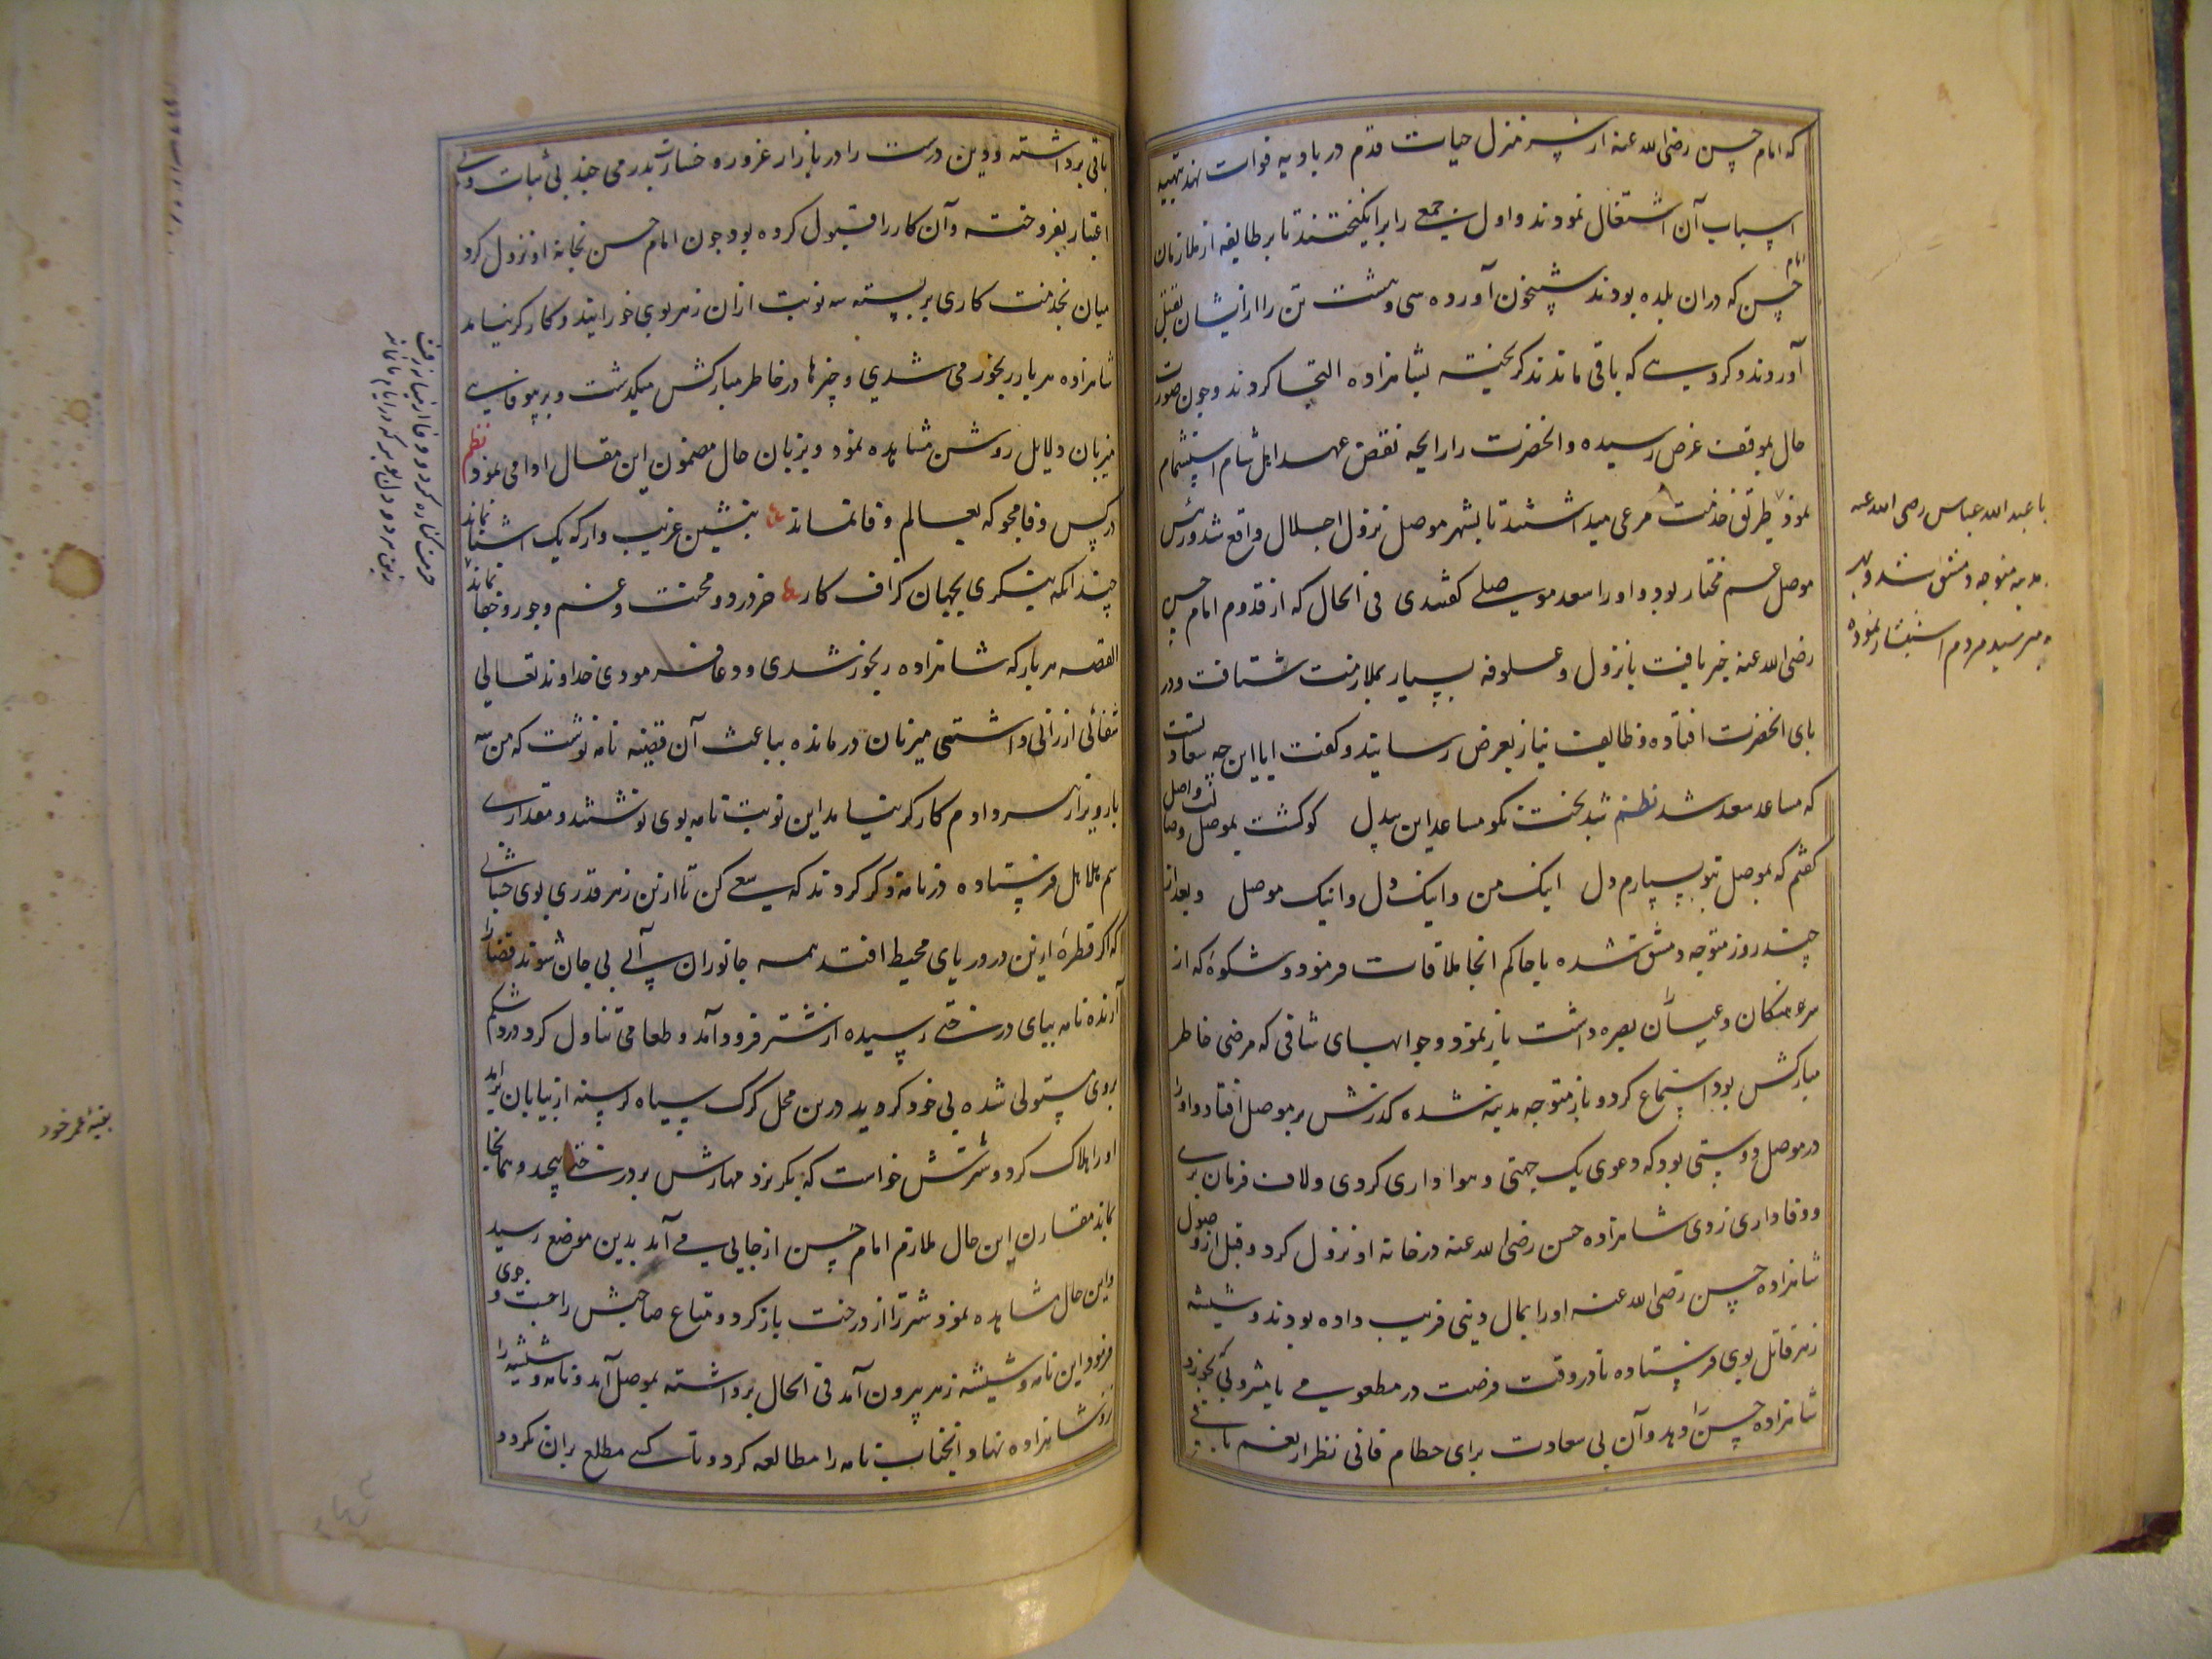 که امام حسن رضی الله عنه از سر منزل حیات قدم در بادیه فوات نهد بتهیه
اسباب آن اشتغال نمودند و اول جمعی را برانگیختند تا بر طایفه از ملازمان
امام حسن که دران بلده بودند شبیخون آورده سی و هشت تن را از ایشان بقتل
آوردند و گروهی که باقی ماندند گریخته بشاهزاده التجا کردند و چون صورت
حال بموقف عرض رسیده و انحضرت رایحه نقض عهد اهل شام استشمام
نمود طریق خدمت مرعی میداشتند تا بشهر موصل نزول اجلال واقع شد و رئیس
موصل عم مختار بود و او را سعد موصلی گفتندی فی الحال که از قدوم امام حسن
رضی الله عنه خبر یافت با نزول و علوفه بسیار بملازمت شتافت و در
پای انحضرت افتاده وظایف نیاز بعرض رسانید و گفت ایا این چه سعادتست
که مساعد سعد شد نظم شد بخت نکو مساعد این بیدل کو گشت بموصل وصالت واصل
گفتم که بموصل بتو بسپارم دل اینک من و اینک دل و اینک موصل و بعد از
چند روز متوجه دمشق شده با حاکم انجا ملاقات فرمود و شکوه که از
بصره داشت باز نمود و جوابهای شافی که مرضی خاطر
مبارکش بود استماع کرد و باز متوجه مدینه شده گذرش بر موصل افتاد و او را
در موصل دوستی بود که دعوی یک جهتی و هواداری کردی و لاف فرمان بری
و وفاداری زدی شاهزاده حسن رضی الله عنه در خانه او نزول کرد و قبل از وصول
شاهزاده حسن رضی الله عنه او را بمال دینی فریب داده بودند و شیشه
زهر قاتل بوی فرستاده تا در وقت فرصت در مطعومی یا مشروبی بخورد
شاهزاده حسن دهد و آن بی سعادت برای حطام فانی نظر از نعیم باقی
با عبد الله عباس رضی الله عنه
مدینه متوجه دمشق شد و بهر
میرسید مردم استبشار نموده
باقی برداشته و دین درست را در بازار غرور و خسارت بدرمی چند بی ثبات و بی
اعتبار بفروخته و آن کار را قبول کرده بود چون امام حسن بخانه او نزول کرد
میان بخدمت کاری بر بسته سه نوبت ازان زهر بوی خورانید و کارگر نیامد
شاهزاده هر بار رنجور می شدی و چیزها در خاطر مبارکش میگذشت و بر بیوفایی
میزبان دلایل روشن مشاهده نمود و بزبان حال مضمون این مقال ادا می نمود نظم
در کس وفا مجو که بعالم وفا نماند بنشین غریب وار که یک اشنا نماند
چندانکه بنگری بجهان گزاف کار جز درد و محنت و غم و جور و جفا نماند
القصه هر بار که شاهزاده رنجور شدی و دعا فرمودی خداوند تعالی
شفائی ارزانی داشتی میزبان درمانده بباعث آن قضیه نامه نوشت که من سه
بار ویرا زهر دادم کارگر نیامد این نوبت نامه بوی نوشتند و مقداری
سم هلاهل فرستاده در نامه ذکر کردند که سعی کن تا ازین زهر قدری بوی چشانی
که اگر قطره ازین در دریای محیط افتد همه جانوران آبی بی جان شوند قضا را
آرنده نامه بپای درختی رسیده از شتر فرود آمد و طعامی تناول کرد درد شکم
بروی مستولی شده بی خود گردید درین محل گرگ سیاه گرسنه از بیابان برآمد
او را هلاک کرد و شترش خواست که بگریزد مهارش بر درخت پیچید و همانجا
بماند مقارن این حال ملازم امام حسن از جایی می آمد بدین موضع رسید
و این حال مشاهده نمود شتر را از درخت باز کرد و متاع صاحبش را جست و جوی
فرمود این نامه و شیشه زهر بیرون آمد فی الحال برداشته بموصل آمد و نامه و شیشه را
نزد شاهزاده نهاد و انجناب نامه را مطالعه کرد و تا کسی مطلع بران نگردد
حرمت کناره کرد و وفا از میانه رفت
بقیه عمر خود